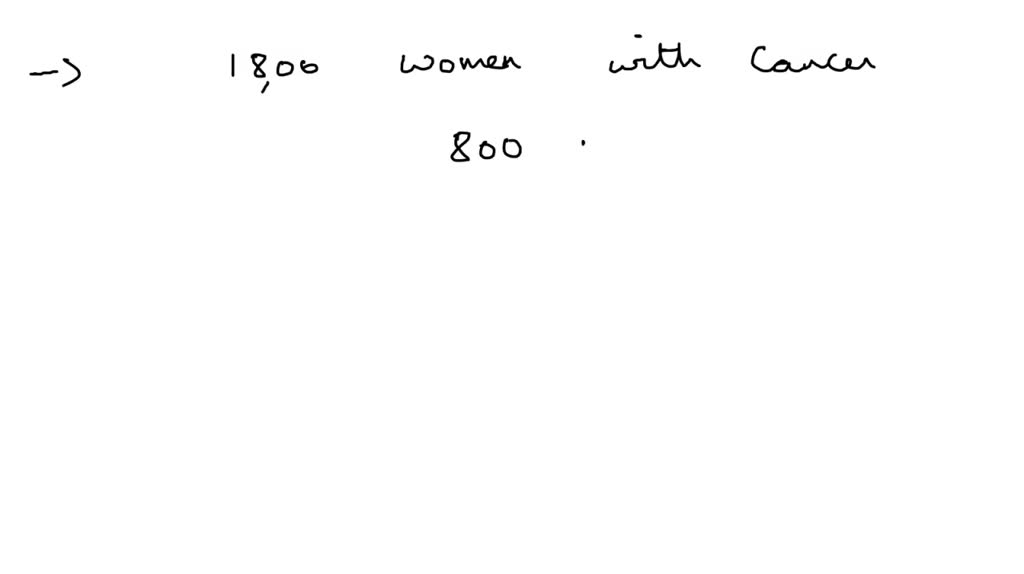 → 18,00 women with Cancer
800 .